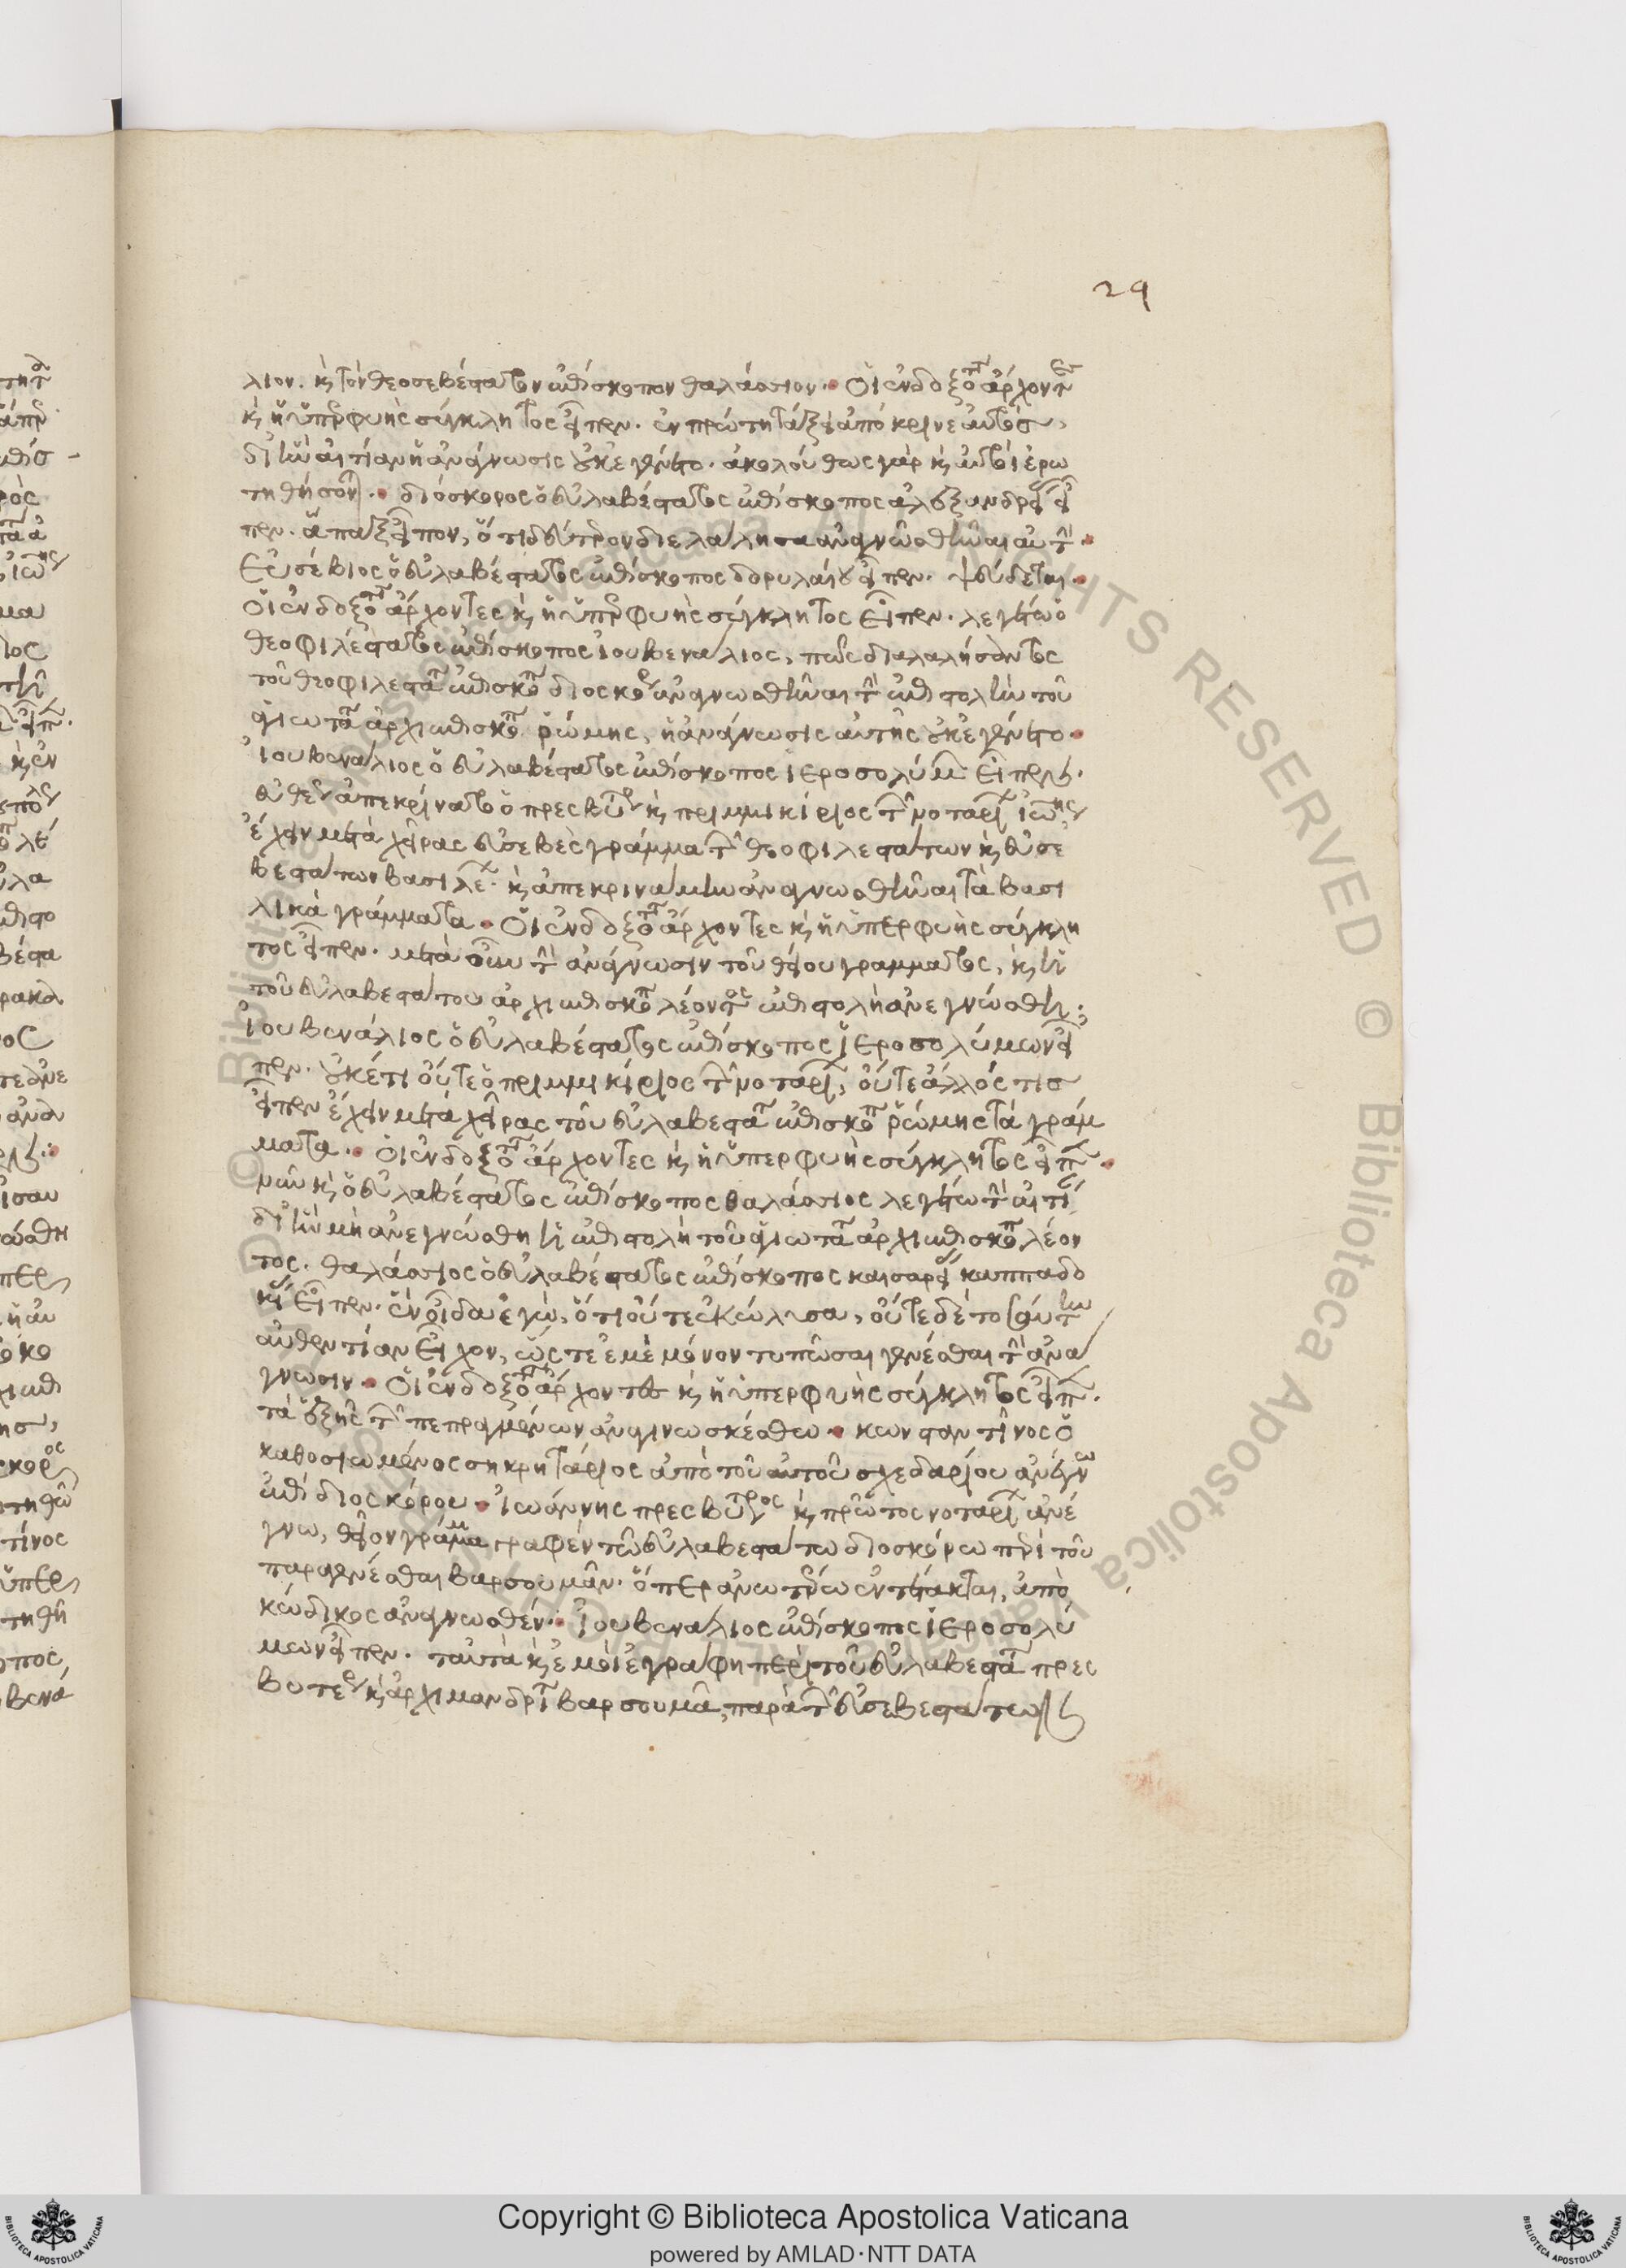 29
λιον. κ τὸν θεοσεβέστατον ἐπίσκοπον θαλάσσιον. Οἱ ἐνδοξότ ἄρχοντες
κ ἡ ὑπερφυὴς σύγκλητος εἶπεν. ἐν πρώτη τάξει ἀπόκριναι αὐτὸς,
δι ἣν αἰτίαν ἡ ἀνάγνωσις οὐκ ἐγένετο. ἀκολούθως γὰρ κ αὐτοὶ ἐρω
τηθήσον. διόσκορος ὁ εὐλαβέστατος ἐπίσκοπος ἀλεξανδρείας εἶ
πεν. ἅπαξ εἶπον, ὅτι δεύτερον διελάλησα ἀναγνωσθῆναι αὐτὴν
Εὐσέβιος ὁ εὐλαβέστατος ἐπίσκοπος δορυλαίου εἶπεν. ψεύδεται.
Οἱ ἐνδοξότ ἄρχοντες κ ἡ ὑπερφυὴς σύγκλητος εἶπεν. λεγέτω ὁ
θεοφιλέστατος ἐπίσκοπος ἰουβενάλιος, πῶς διαλαλήσαντος
τοῦ θεοφιλεστάτ ἐπισκόπ διοσκόρου ἀναγνωσθῆναι τὴν ἐπιστολὴν τοῦ
ἁγιωτάτ ἀρχιεπισκόπ ῥώμης, ἡ ἀνάγνωσις αὐτῆς οὐκ ἐγένετο.
Ἰουβενάλιος ὁ εὐλαβέστατος ἐπίσκοπος ἱεροσολύμ εἶπεν.
εὐθέως ἀπεκρίνατο ὁ πρεσβύτερος κ πριμμικίριος τῶν νοταρί ἰωάννης
ἔχειν μετὰ χεῖρας εὐσεβὲς γράμμα τῶν θεοφιλεστάτων κ εὐσε
βεστάτων βασιλέ. κ ἀπεκρινάμην ἀναγνωσθῆναι τὰ βασι
λικὰ γράμματα. Οἱ ἐνδοξότ ἄρχοντες κ ἡ ὑπερφυὴς σύγκλη
τος εἶπεν. μετὰ οὖν τὴν ἀνάγνωσιν τοῦ θείου γράμματος, κ ἡ
τοῦ εὐλαβεστάτου ἀρχιεπισκόπ λέοντος ἐπιστολὴ ἀνεγνώσθη;
Ἰουβενάλιος ὁ εὐλαβέστατος ἐπίσκοπος ἱεροσολύμων εἶ
πεν. οὐκέτι οὔτε ὁ πριμμικίριος τῶν νοταρί, οὔτε ἄλλός τις
εἶπεν ἔχειν μετὰ χεῖρας τοῦ εὐλαβεστάτ ἐπισκόπ ῥώμης τὰ γράμ
ματα. Οἱ ἐνδοξότ ἄρχοντες κ ἡ ὑπερφυὴς σύγκλητος εἶπ.
νῦν κ ὁ εὐλαβέστατος ἐπίσκοπος θαλάσσιος λεγέτω τὴν αἰτί
δι ἣν μὴ ἀνεγνώσθη ἡ ἐπιστολὴ τοῦ ἁγιωτάτ ἀρχιεπισκόπ λέον
τος. θαλάσσιος ὁ εὐλαβέστατος ἐπίσκοπος καισαρείας καππαδο
κίας εἶπεν. ἓν οἶδα ἐγὼ, ὅτι οὔτε ἐκώλυσα, οὔτε δὲ τοσαύτην
αὐθεντίαν εἶχον, ὥς τε ἐμὲ μόνον τυπῶσαι γενέσθαι τὴν ἀνά
γνωσιν. Οἱ ἐνδοξότ ἄρχοντες κ ἡ ὑπερφυὴς σύγκλητος εἶπ.
τὰ ἑξῆς τῶν πεπραγμένων ἀναγινωσκέσθω. κωνσταντῖνος ὁ
καθοσιωμένος σηκρητάριος ἀπὸ τοῦ αὐτοῦ σχεδαρίου ἀνέγνω
ἐπὶ διοσκόρου. Ἰωάννης πρεσβύτερος κ πρῶτος νοταρί ἀνέ
γνω, θεῖον γράμμα γραφὲν τῶ εὐλαβεστάτω διοσκόρω περὶ τοῦ
παραγενέσθαι βαρσουμᾶν. ὅπερ ἀνωτέρω ἐντέτακται, ἀπὸ
κώδικος ἀναγνωσθέν. Ἰουβενάλιος ἐπίσκοπος ἱεροσολύ
μων εἶπεν. ταῦτα κ ἐμοὶ ἐγράφη περὶ τοῦ εὐλαβεστάτ πρεσ
βυτέρου κ ἀρχιμανδρίτ βαρσουμᾶ, παρὰ τῶν εὐσεβεστάτων
Copyright © Biblioteca Apostolica Vaticana
powered by AMLAD·NTT DATA